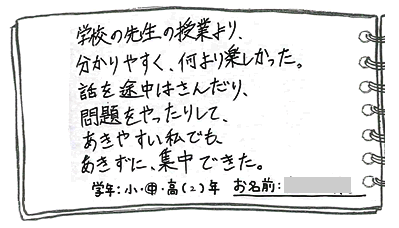 学校の先生の授業より、
分かりやすく、何より楽しかった。
話を途中はさんだり、
問題をやったりして、
あきやすい私でも、
あきずに、集中できた。
学年:小・中・高(2)年 お名前: